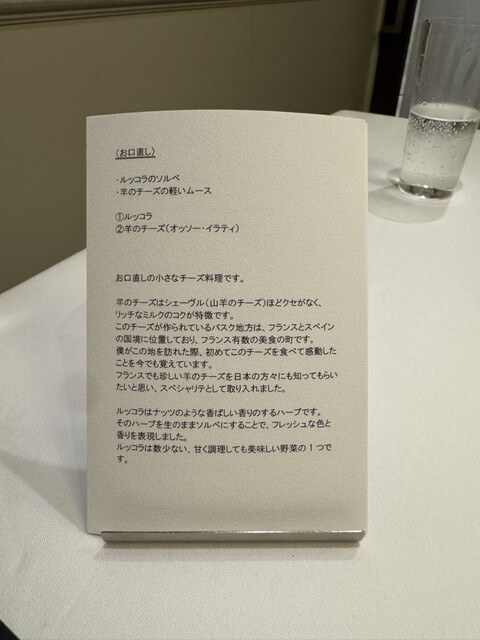 (お口直し)
・ルッコラのソルベ
・羊のチーズの軽いムース
①ルッコラ
②羊のチーズ(オッソー・イラティ)
お口直しの小さなチーズ料理です。
羊のチーズはシェーヴル(山羊のチーズ)ほどクセがなく、
リッチなミルクのコクが特徴です。
このチーズが作られているバスク地方は、フランスとスペイン
の国境に位置しており、フランス有数の美食の町です。
僕がこの地を訪れた際、初めてこのチーズを食べて感動した
ことを今でも覚えています。
フランスでも珍しい羊のチーズを日本の方々にも知ってもらい
たいと思い、スペシャリテとして取り入れました。
ルッコラはナッツのような香ばしい香りのするハーブです。
そのハーブを生のままソルベにすることで、フレッシュな色と
香りを表現しました。
ルッコラは数少ない、甘く調理しても美味しい野菜の1つで
す。